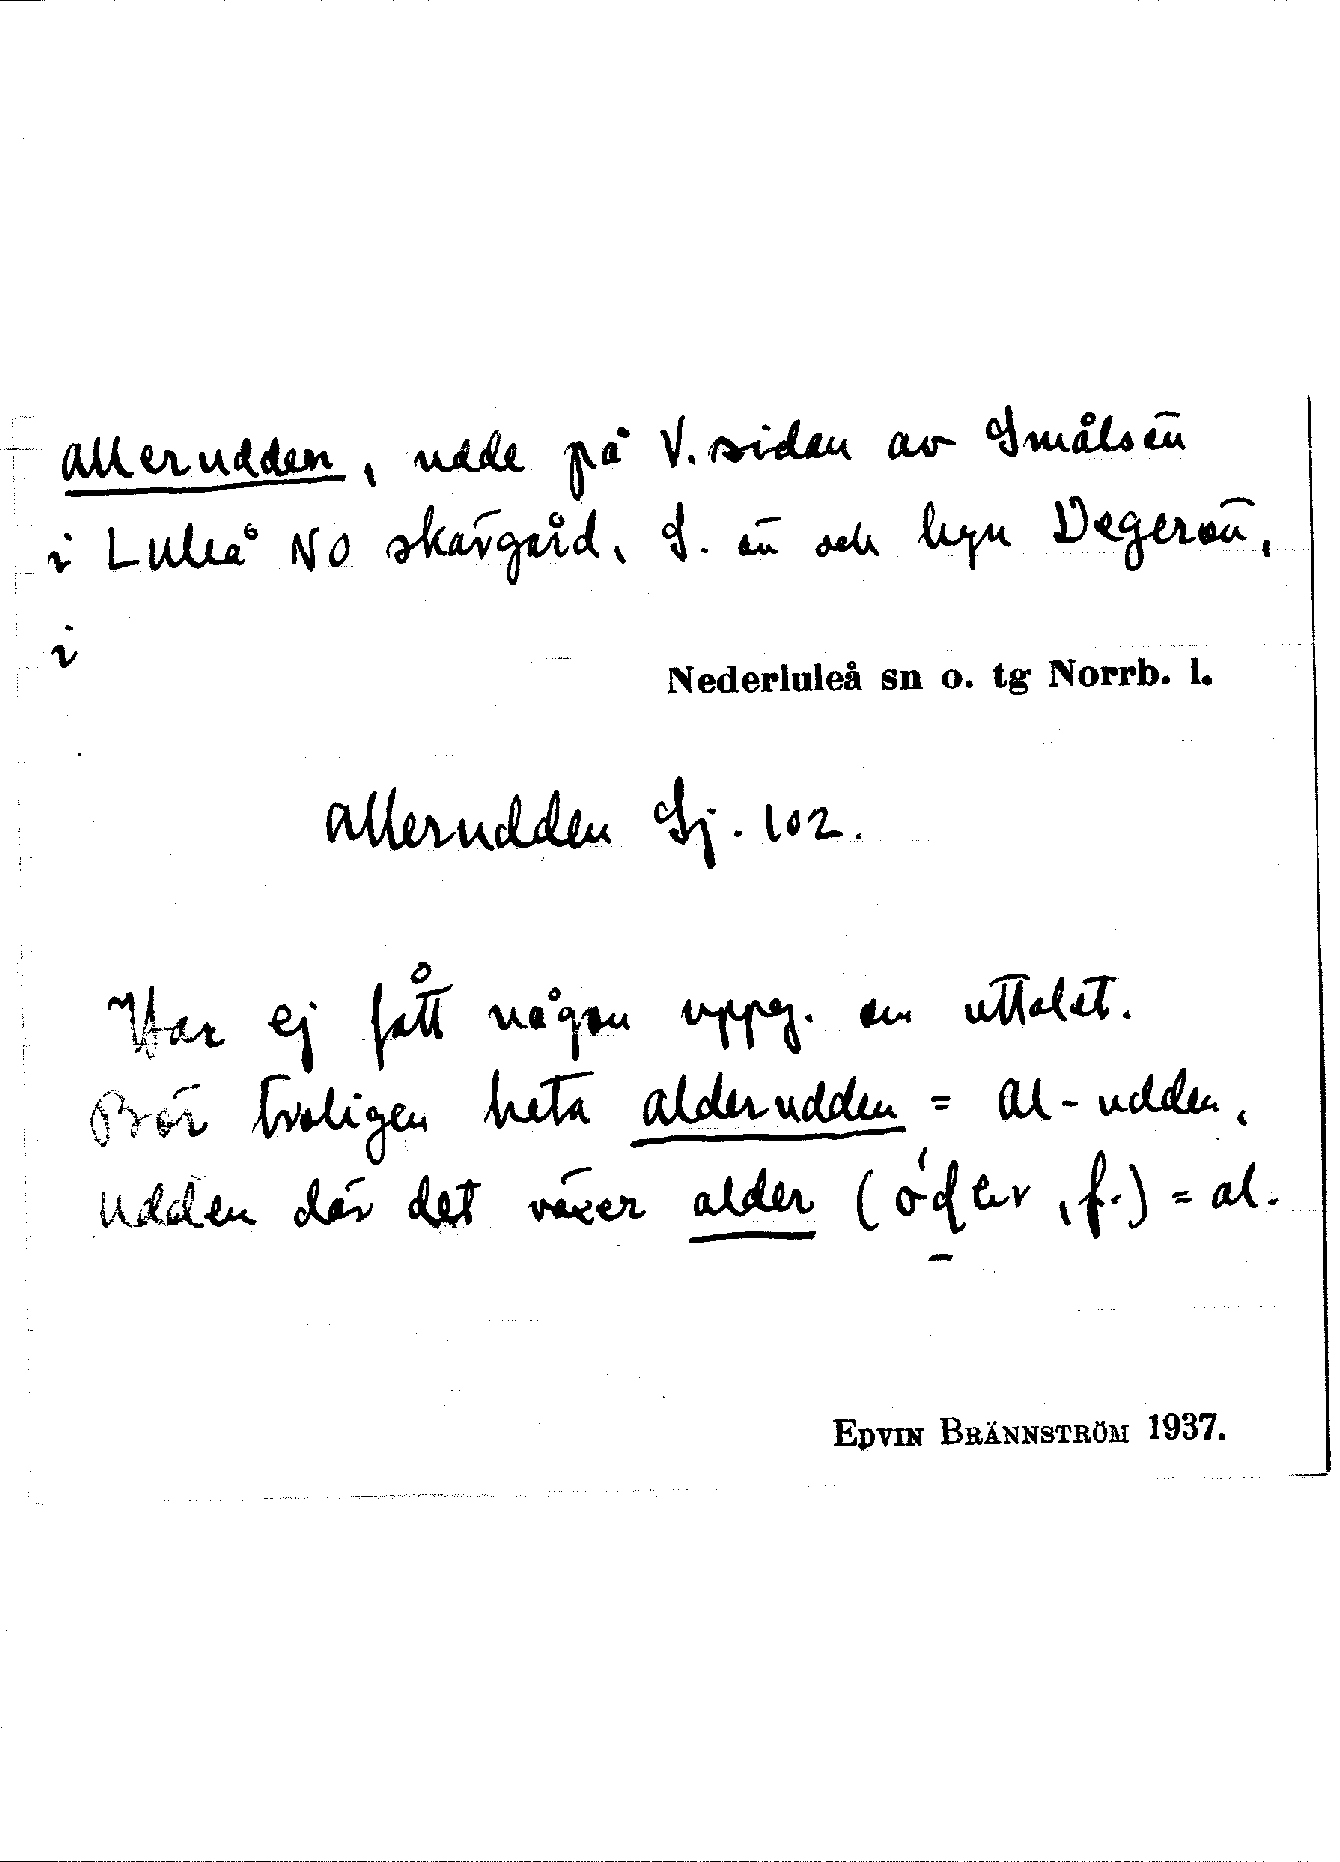 Allerudden, udde på V. sidan av Smålsön
i Luleå NO skärgård, S. om och byn Degerön,
i
Nederluleå sn o. tg Norrb. l.
Allerudden Sj. 102.
Har ej fått någon uppg. om uttalet.
Bör troligen heta alderudden = Al-udden,
udden där det växer alder (, f.) = al.
EDVIN BRÄNNSTRÖM 1937.